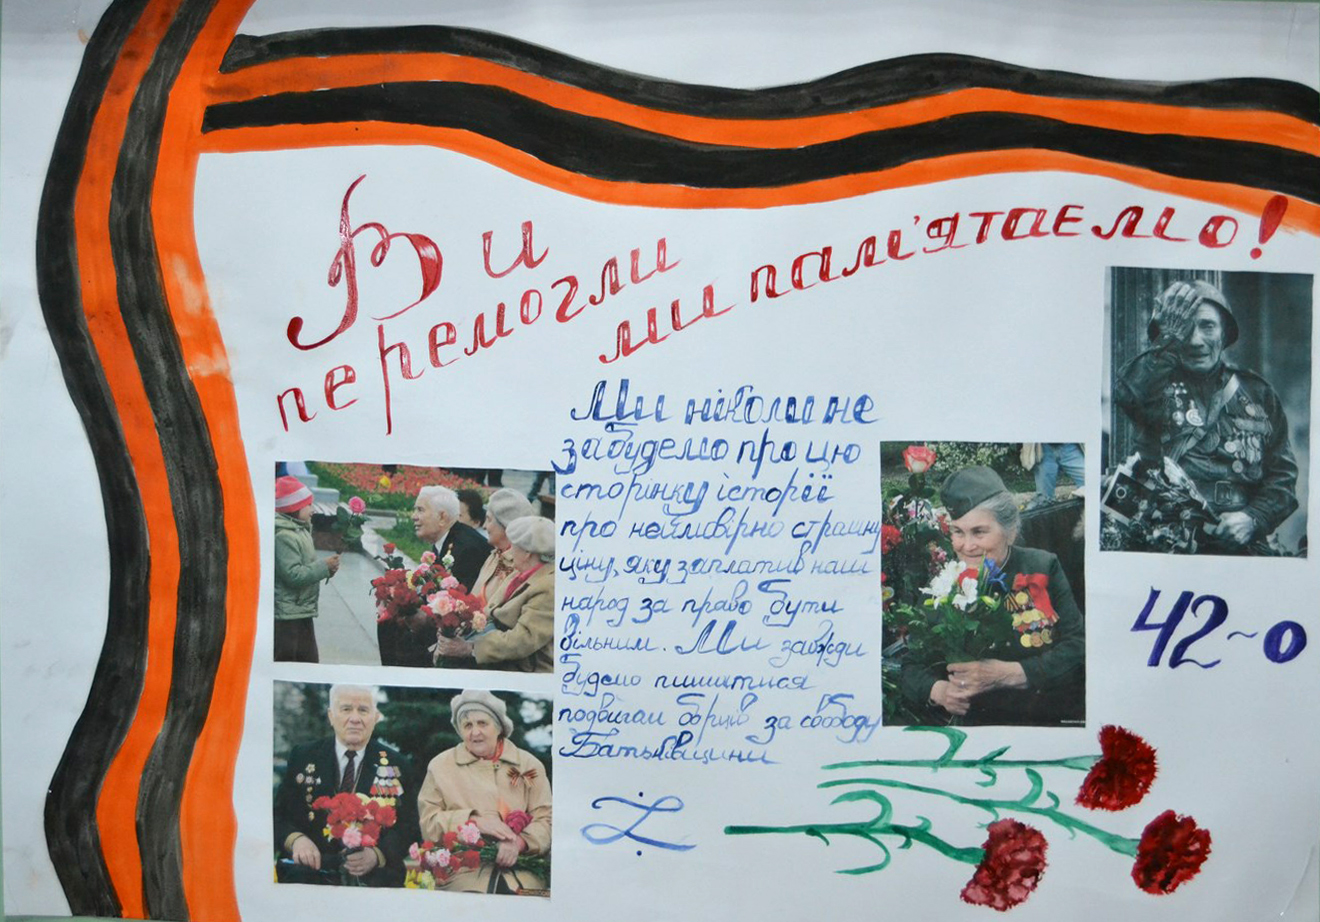 Ви
перемогли
ми пам'ятаємо!
Ми ніколи не
забудемо про цю
сторінку історії
про неймовірно страшну
ціну, яку заплатив наш
народ за право бути
вільним. Ми завжди
будемо пишатися
подвигом борців за свободу
Батьківщини
42-о